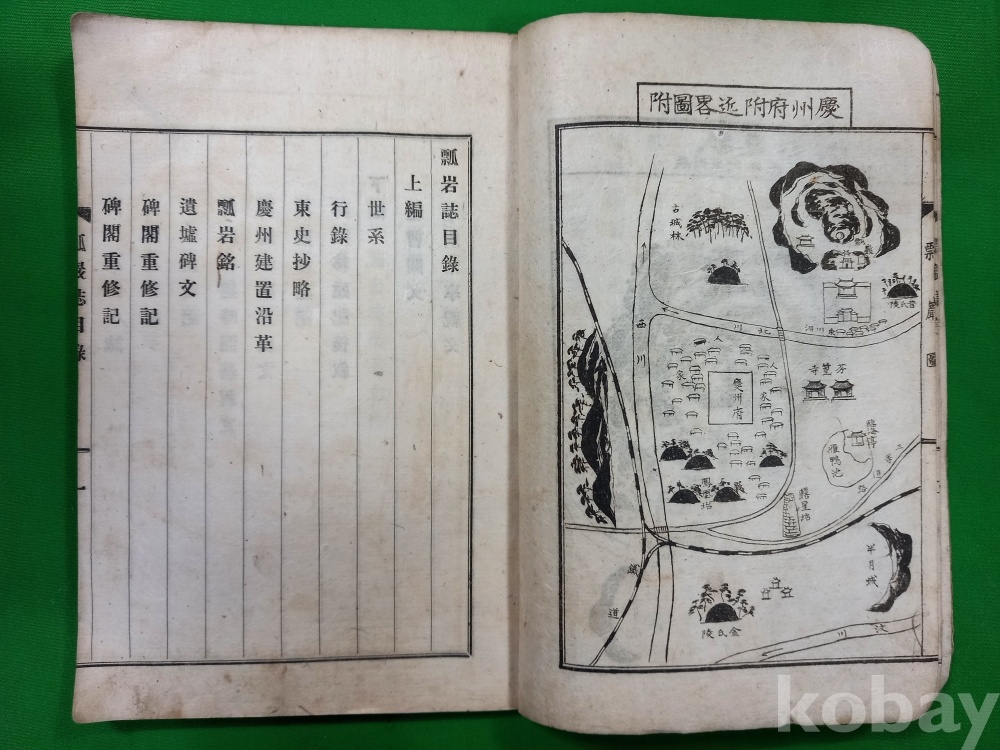 慶州府附近畧圖附
古城林
昔氏陵
北川
西川
人家
慶州府
人家
芬篁寺
臨海亭
雁鴨池
道路
鳳凰坮
瞻星坮
半月城
鐵道
金氏陵
汶川
圖
瓢岩誌目錄
上編
世系
行錄
東史抄略
慶州建置沿革
瓢岩銘
遺墟碑文
碑閣重修記
碑閣重修記
瓢巖誌目錄
一
kobay